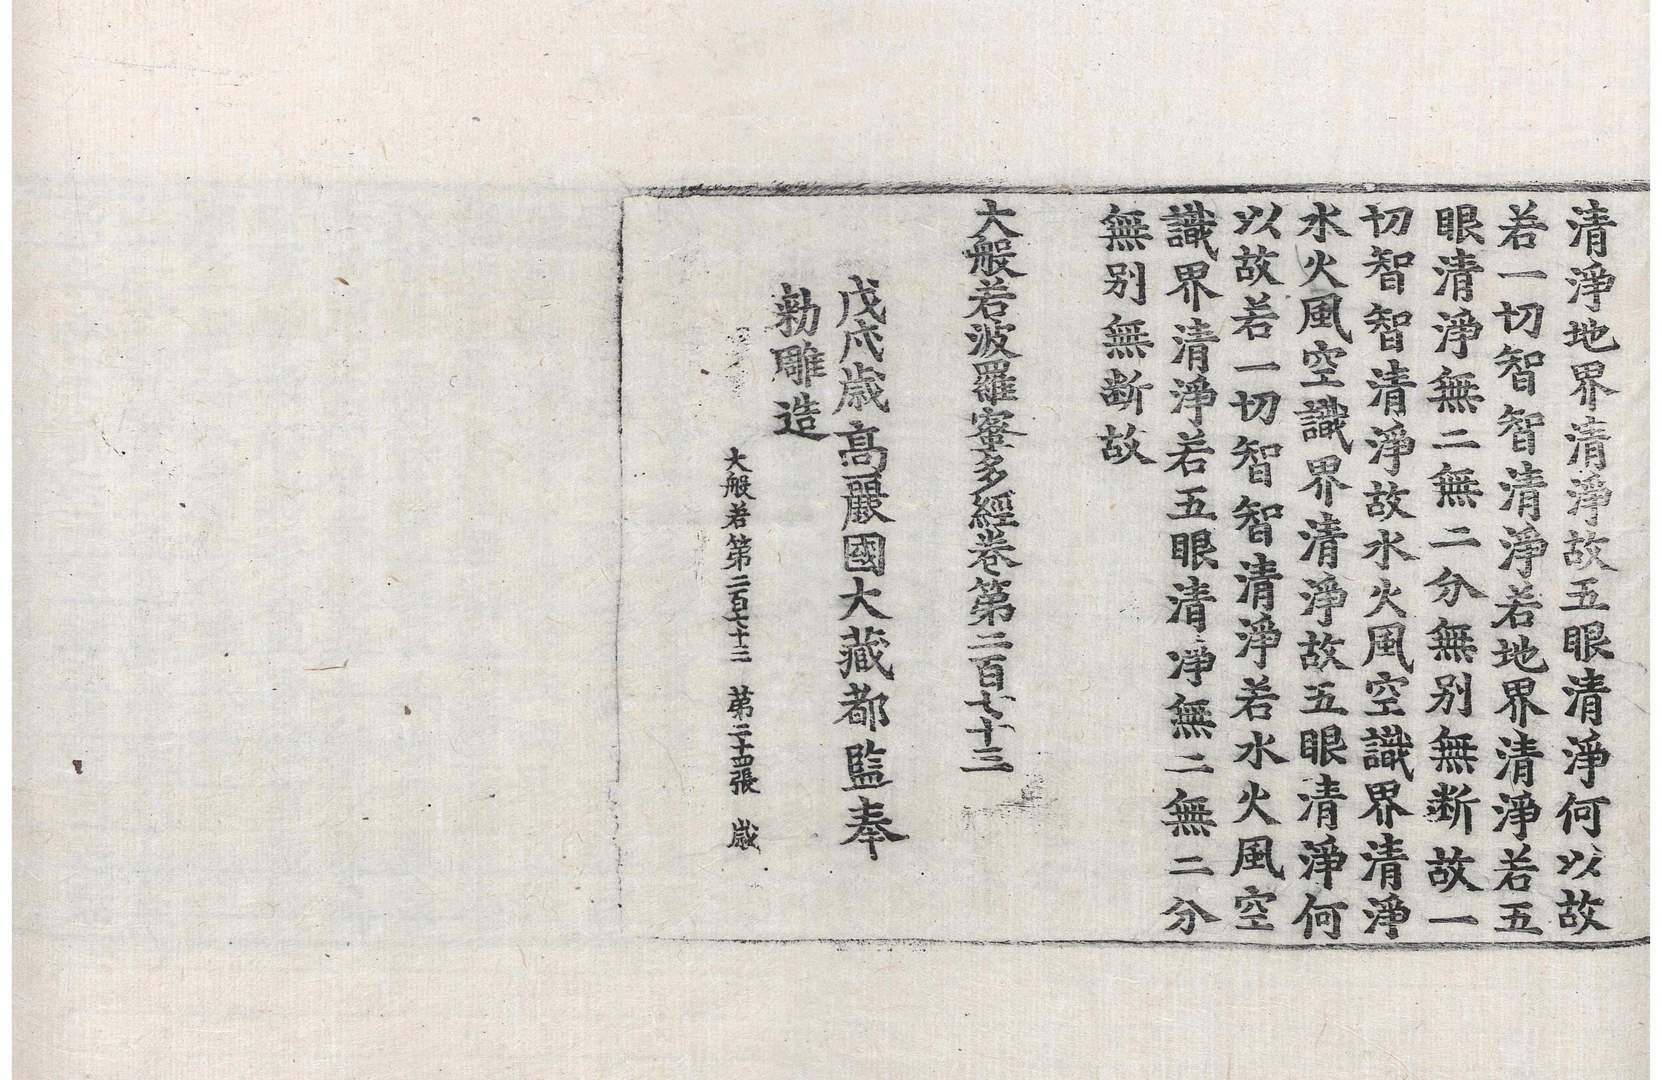 清淨地界清淨故五眼清淨何以故
若一切智智清淨若地界清淨若五
眼清淨無二無二分無別無斷故一
切智智清淨故水火風空識界清淨
水火風空識界清淨故五眼清淨何
以故若一切智智清淨若水火風空
識界清淨若五眼清淨無二無二分
無別無斷故
大般若波羅蜜多經卷第二百七十三
戊戌歲高麗國大藏都監奉
勅雕造
大般若第二百七十三 第二十四張 歲